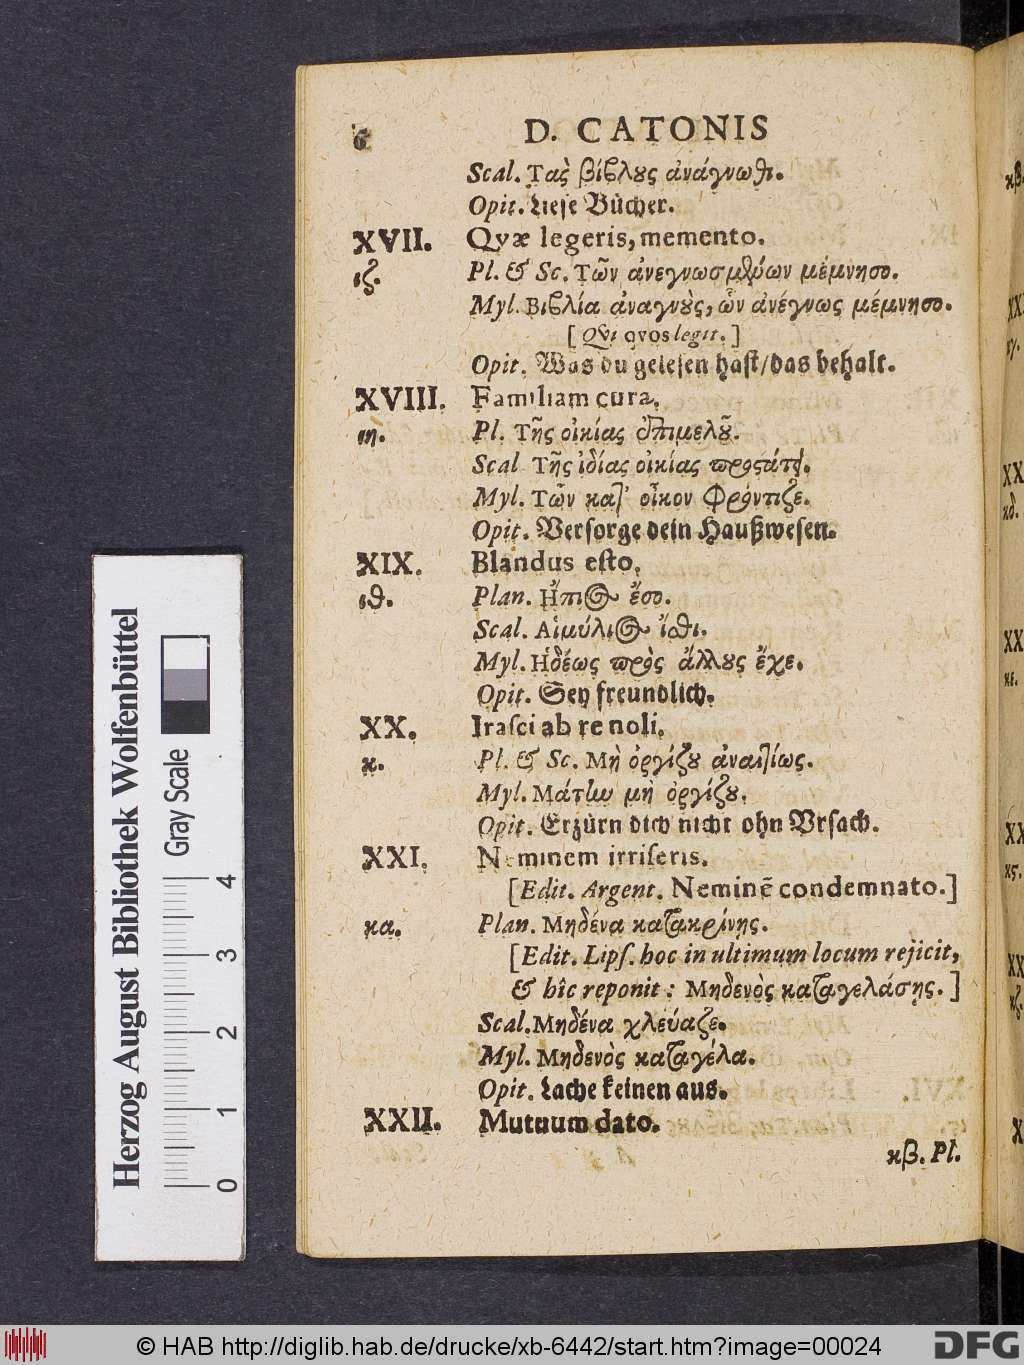 6 D. CATONIS
Scal. Τὰς βίβλους ἀνάγνωθι.
Opit. Liese Bücher.
XVII. Qvæ legeris, memento.
ιζ. Pl. & Sc. Τῶν ἀνεγνωσμένων μέμνησο.
Myl. Βιβλία ἀναγνοὺς, ὧν ἀνέγνως μέμνησο.
[Qvi qvos legit.]
Opit. Was du gelesen hast/das behalt.
XVIII. Familiam cura.
ιη. Pl. Τῆς οἰκίας ἐπιμελοῦ.
Scal Τῆς ἰδίας οἰκίας προστάτει.
Myl. Τῶν κατ' οἶκον Φρόντιζε.
Opit. Versorge dein Haußwesen.
XIX. Blandus esto.
ιθ. Plan. Ἤπιος ἔσο.
Scal. Αἱμύλιος ἴσθι.
Myl. Ἡδέως πρὸς ἄλλους ἔχε.
Opit. Sey freundlich.
XX. Irasci ab re noli.
κ. Pl. & Sc. Μὴ ὀργίζου ἀναιτίως.
Myl. Μάτην μὴ ὀργίζου.
Opit. Erzürn dich nicht ohn Vrsach.
XXI. Neminem irriseris.
[Edit. Argent. Neminē condemnato.]
κα. Plan. Μηδένα κατακρίνῃς.
[Edit. Lips. hoc in ultimum locum rejicit,
& hîc reponit: Μηδενὸς καταγελάσῃς.]
Scal. Μηδένα χλεύαζε.
Myl. Μηδενὸς καταγέλα.
Opit. Lache keinen aus.
XXII. Mutuum dato.
κβ. Pl.
Herzog August Bibliothek Wolfenbüttel
Gray Scale
0 1 2 3 4
© HAB http://diglib.hab.de/drucke/xb-6442/start.htm?image=00024
DFG